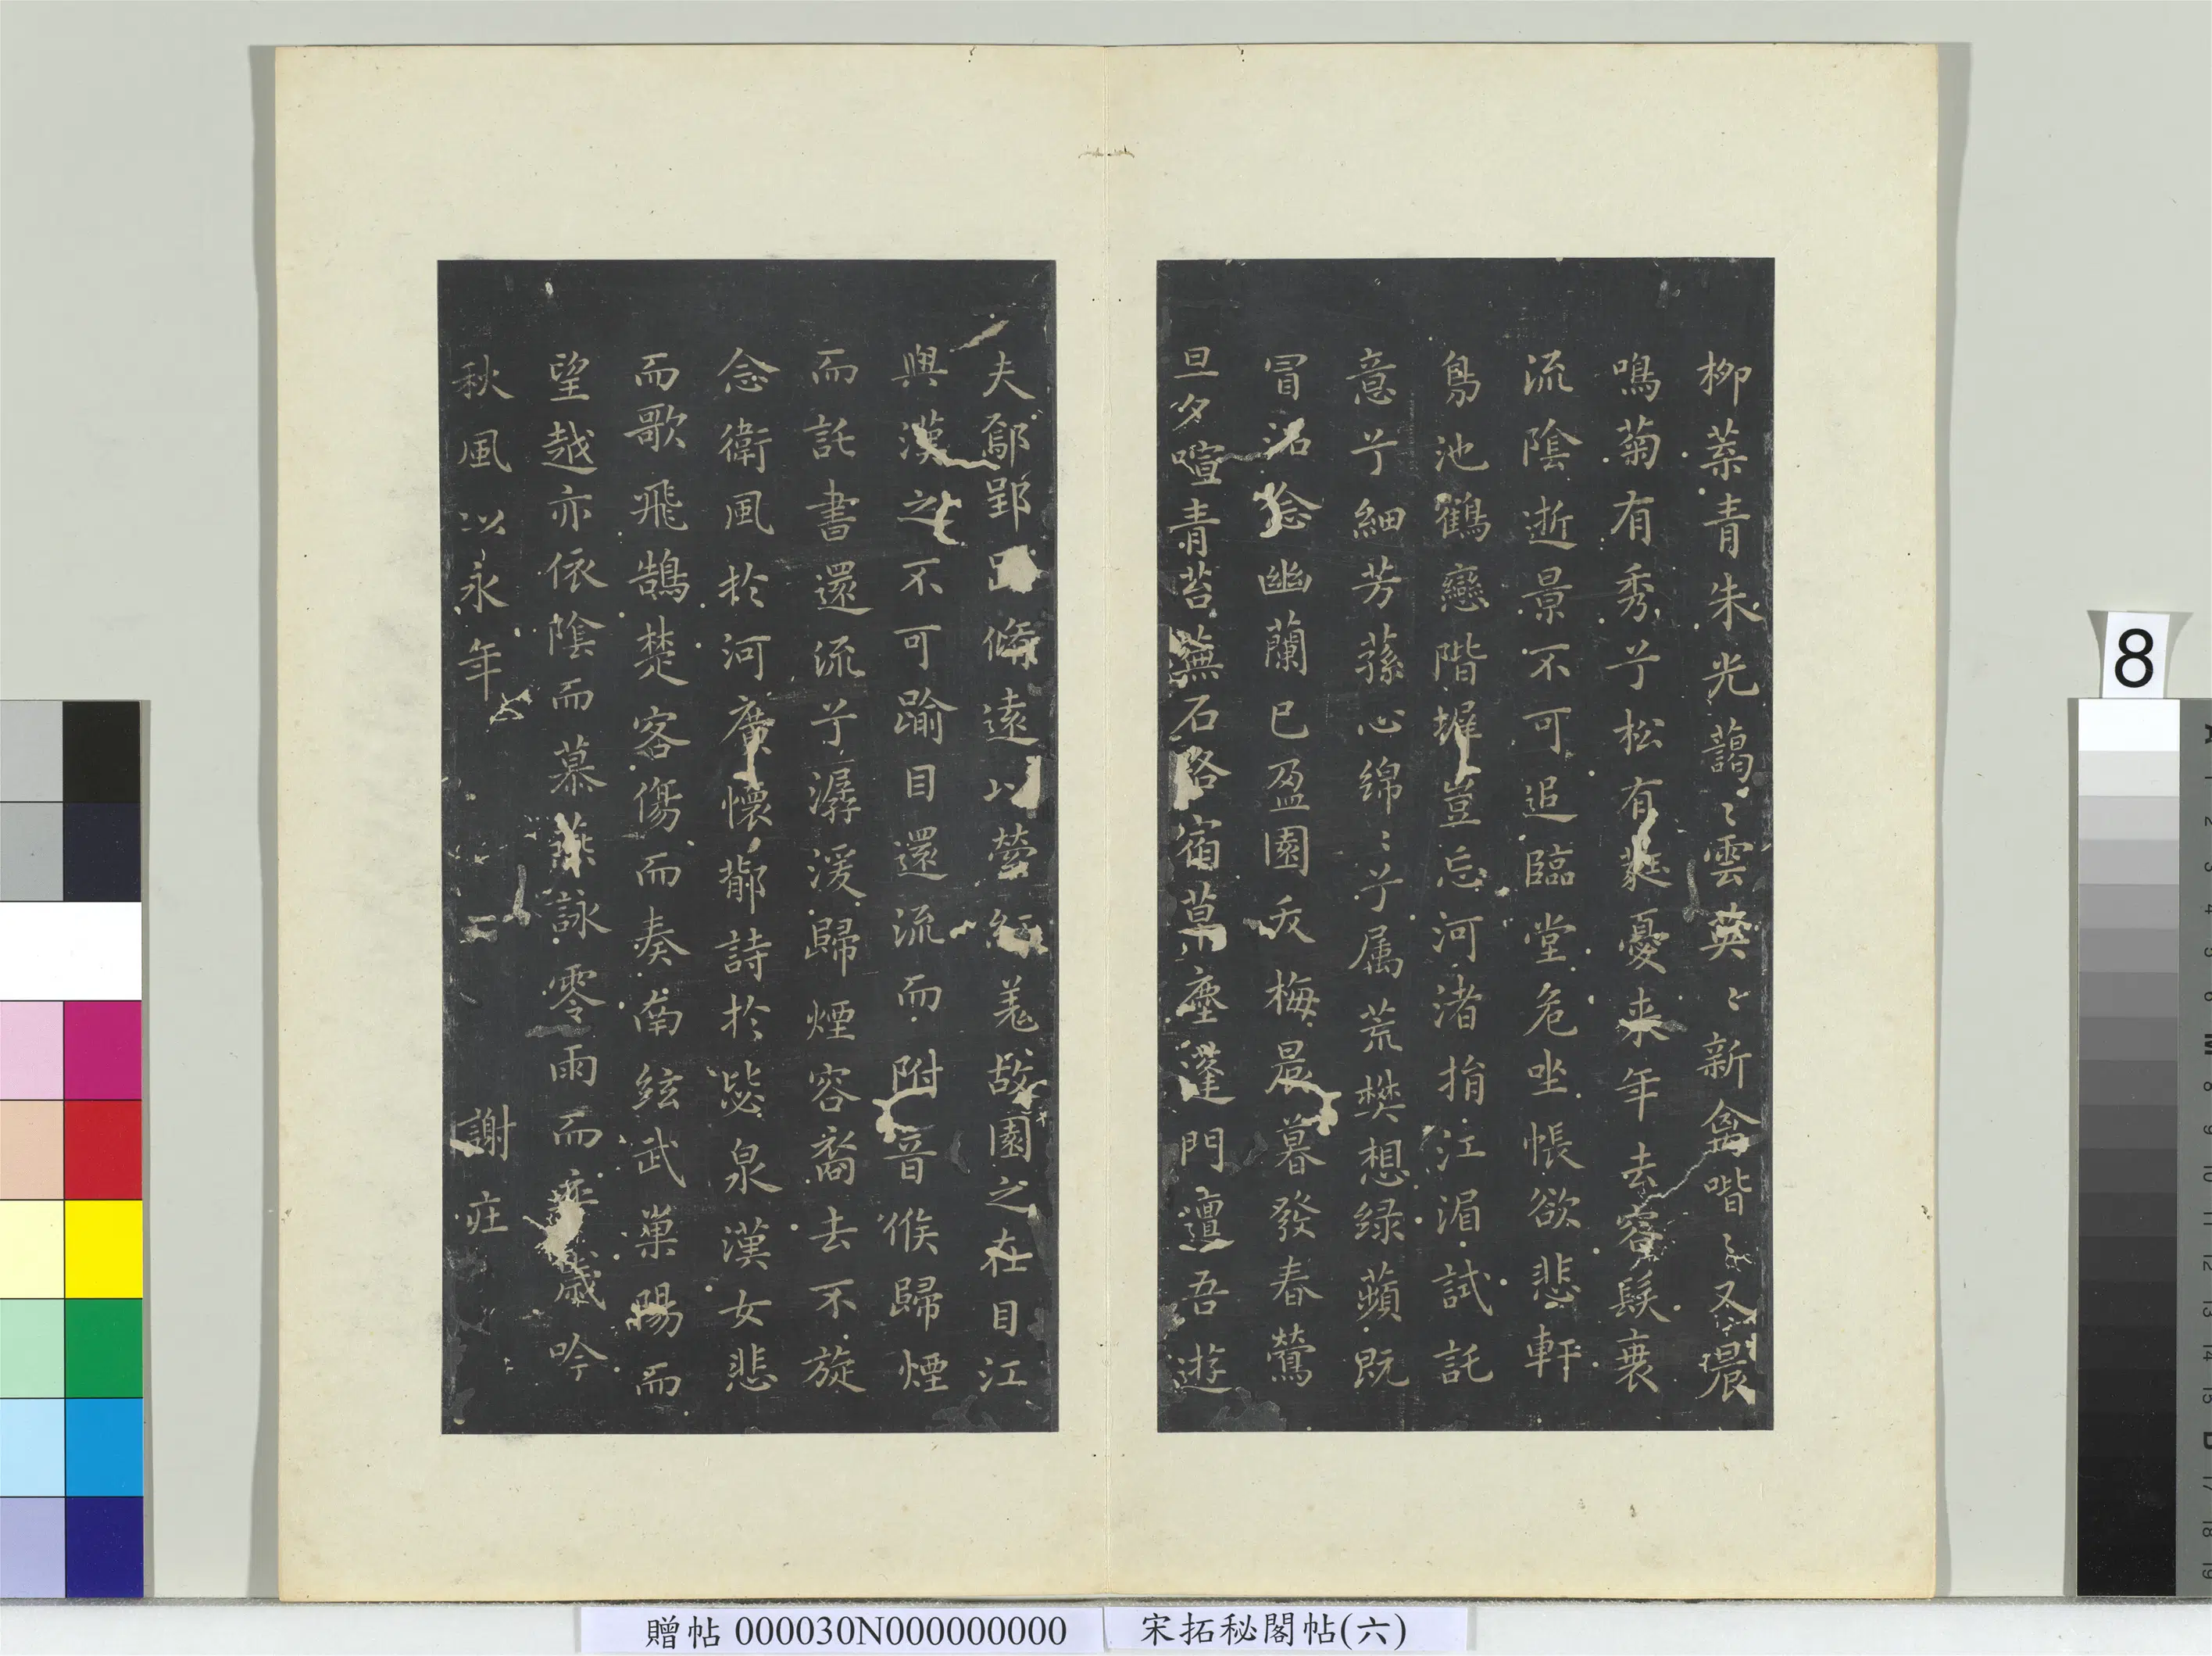 柳菜青朱光藹〻雲英〻新禽喈〻冬晨
鳴菊有秀兮松有蕤憂来年去容髮衰
流陰逝景不可追臨堂危坐悵欲悲軒
鳧池鶴戀階墀豈忘河渚捐江湄試託
意兮細芳蓀心綿〻兮属荒樊想緑蘋既
冒沼念幽蘭已盈園夭梅晨暮發春鶯
旦夕喧青苔蕪石路宿草塵蓬門邅吾遊
夫鄢郢路脩遠以縈紆羗故園之在目江
與漢之不可踰目還流而附音候歸煙
而託書還流兮潺湲歸煙容裔去不旋
念衛風於河廣懷鄁詩於毖泉漢女悲
而歌飛鵠楚客傷而奏南絃武巢陽而
望越亦依陰而慕燕詠零雨而卒歲吟
秋風以永年
謝庄
贈帖 000030N000000000
宋拓秘閣帖(六)
8